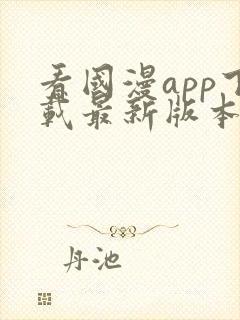 看國漫app下
載最新版本
丹池